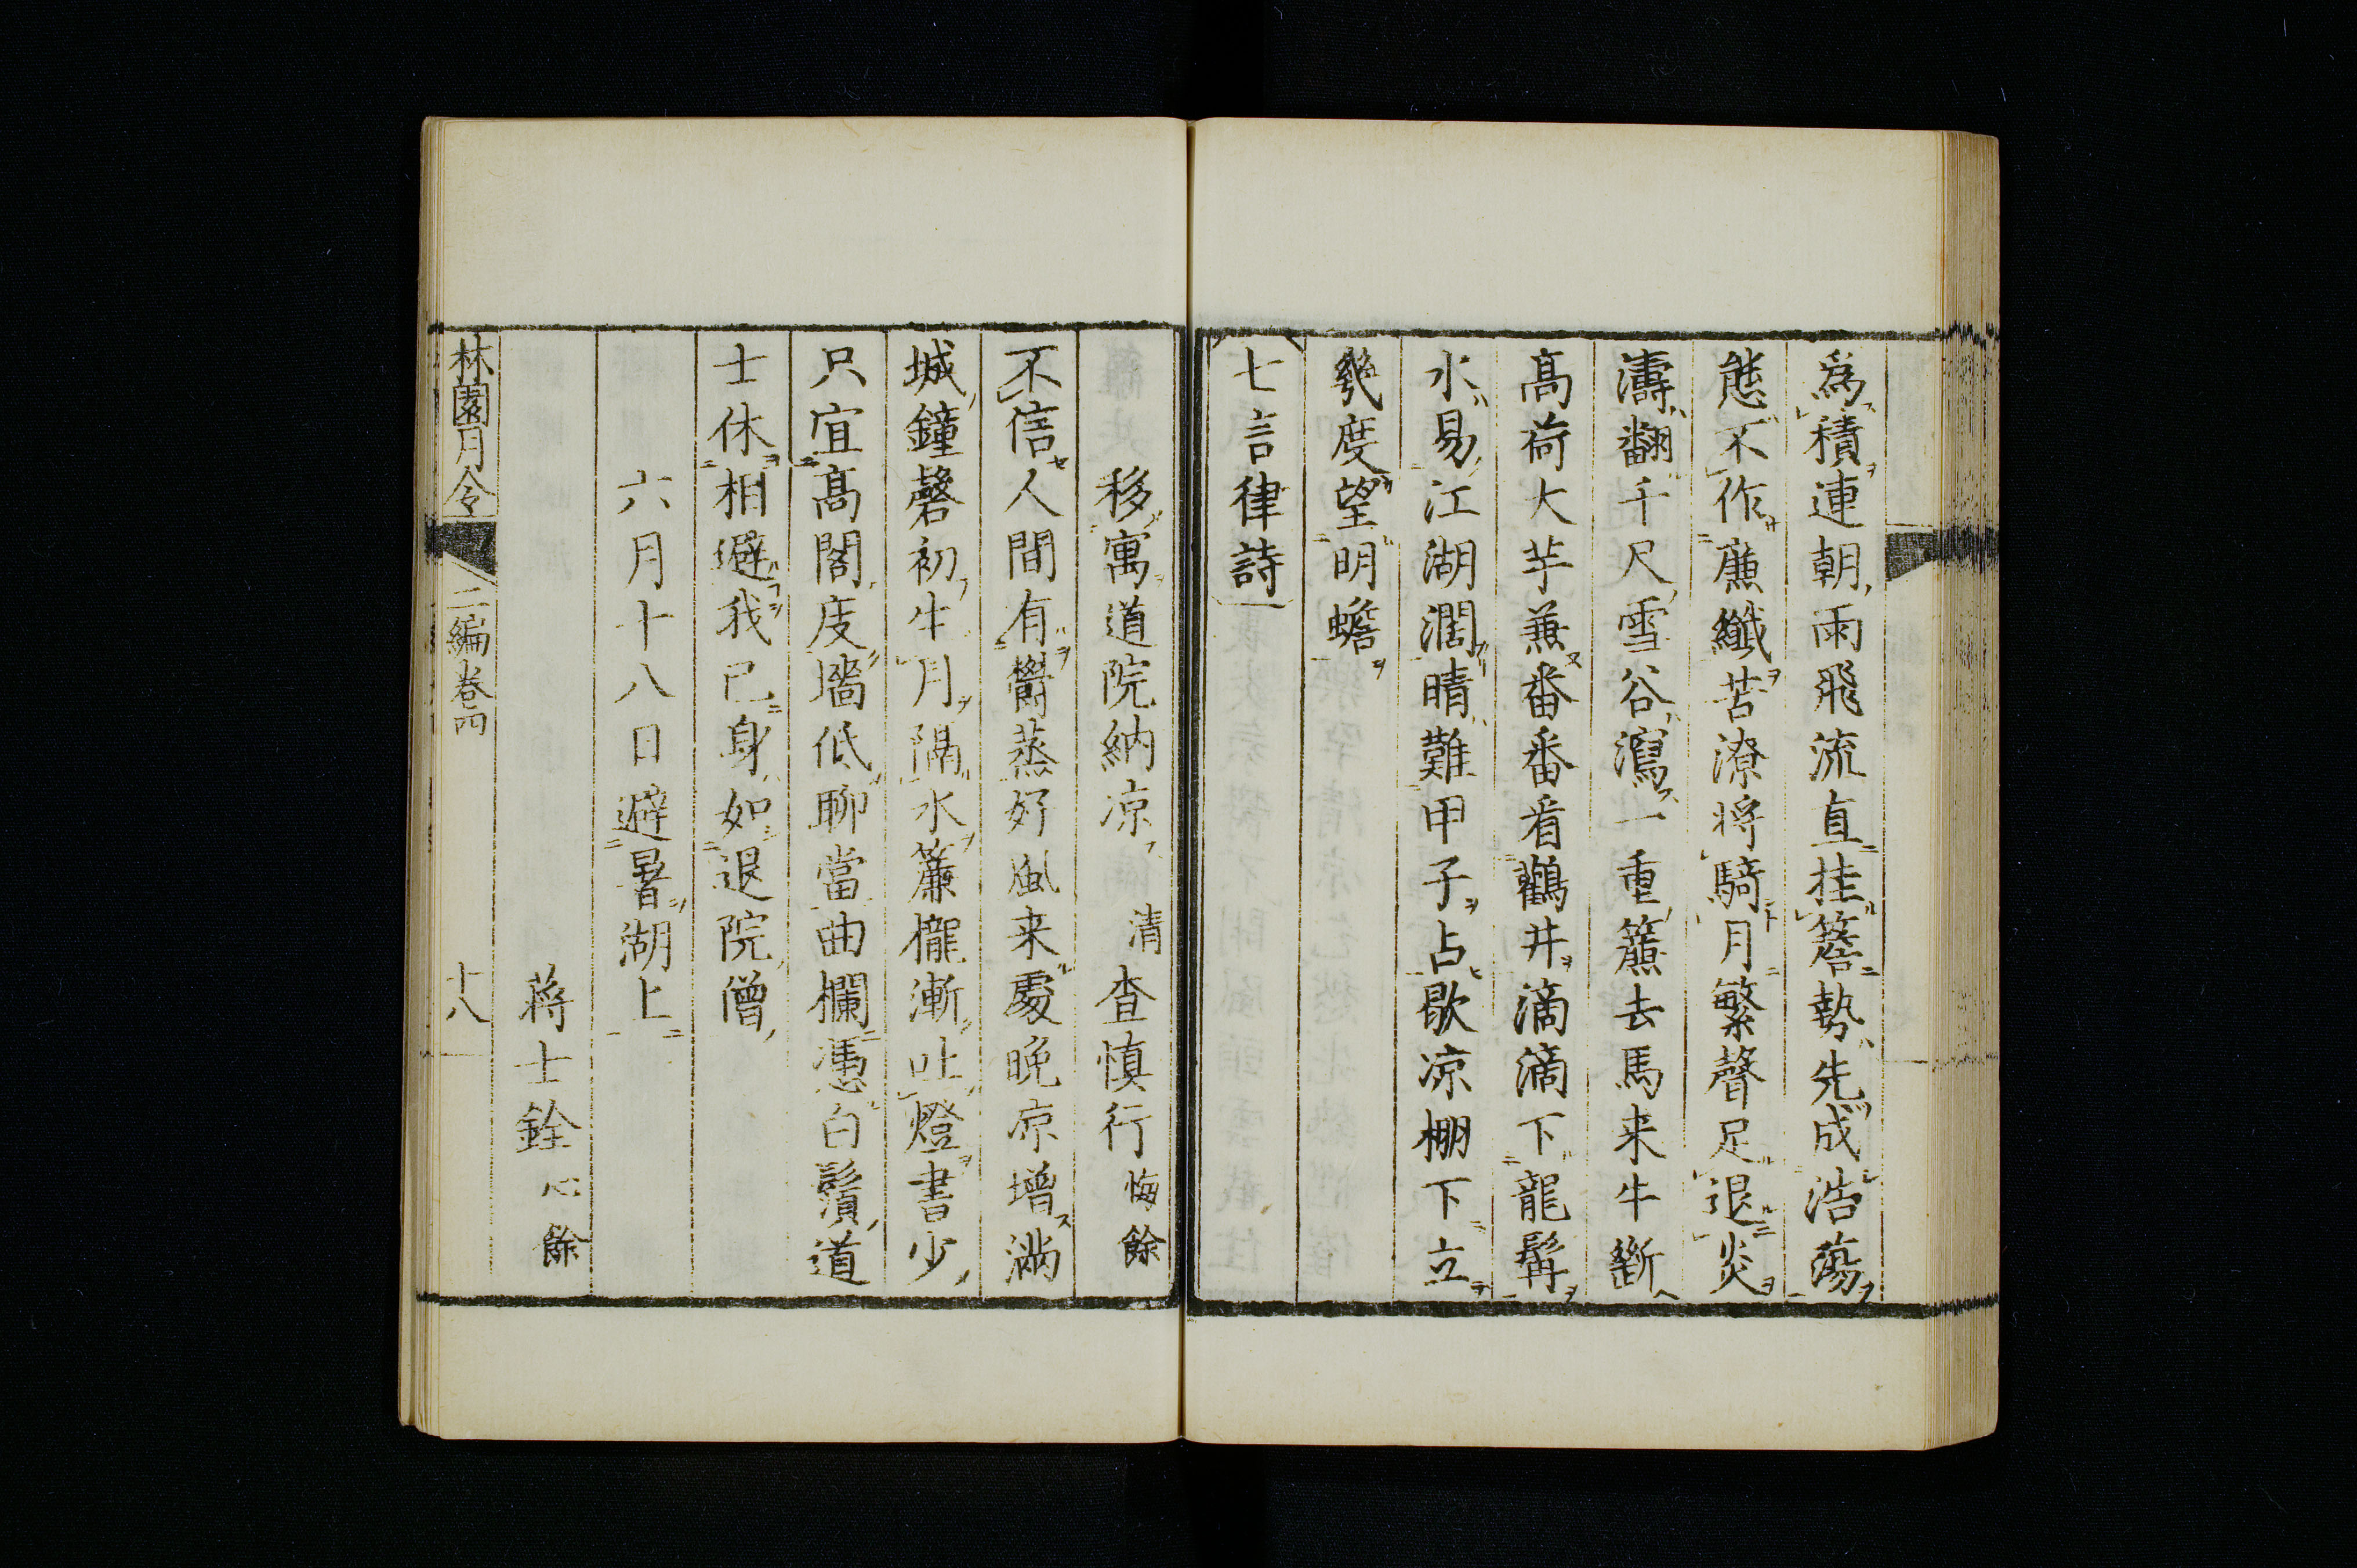 爲積連朝雨飛流直挂簷勢先成浩蕩
態不作廉纖苦潦將騎月繁聲足退炎
濤翻千尺雪谷瀉一重簾去馬来牛斷
髙荷大芋兼番番看鸛井滴滴下龍髯
水易江湖濶晴難甲子占歇凉棚下立
幾度望明蟾
七言律詩
移寓道院納凉 清 査慎行 悔餘
不信人間有鬱蒸好風来處晩凉增滿
城鐘磬初生月隔水簾櫳漸吐燈書少
只宜髙閣庋墻低聊當曲欄憑白鬚道
士休相避我已身如退院僧
六月十八日避暑湖上
蔣士銓 心餘
林園月令 二編卷四 十八